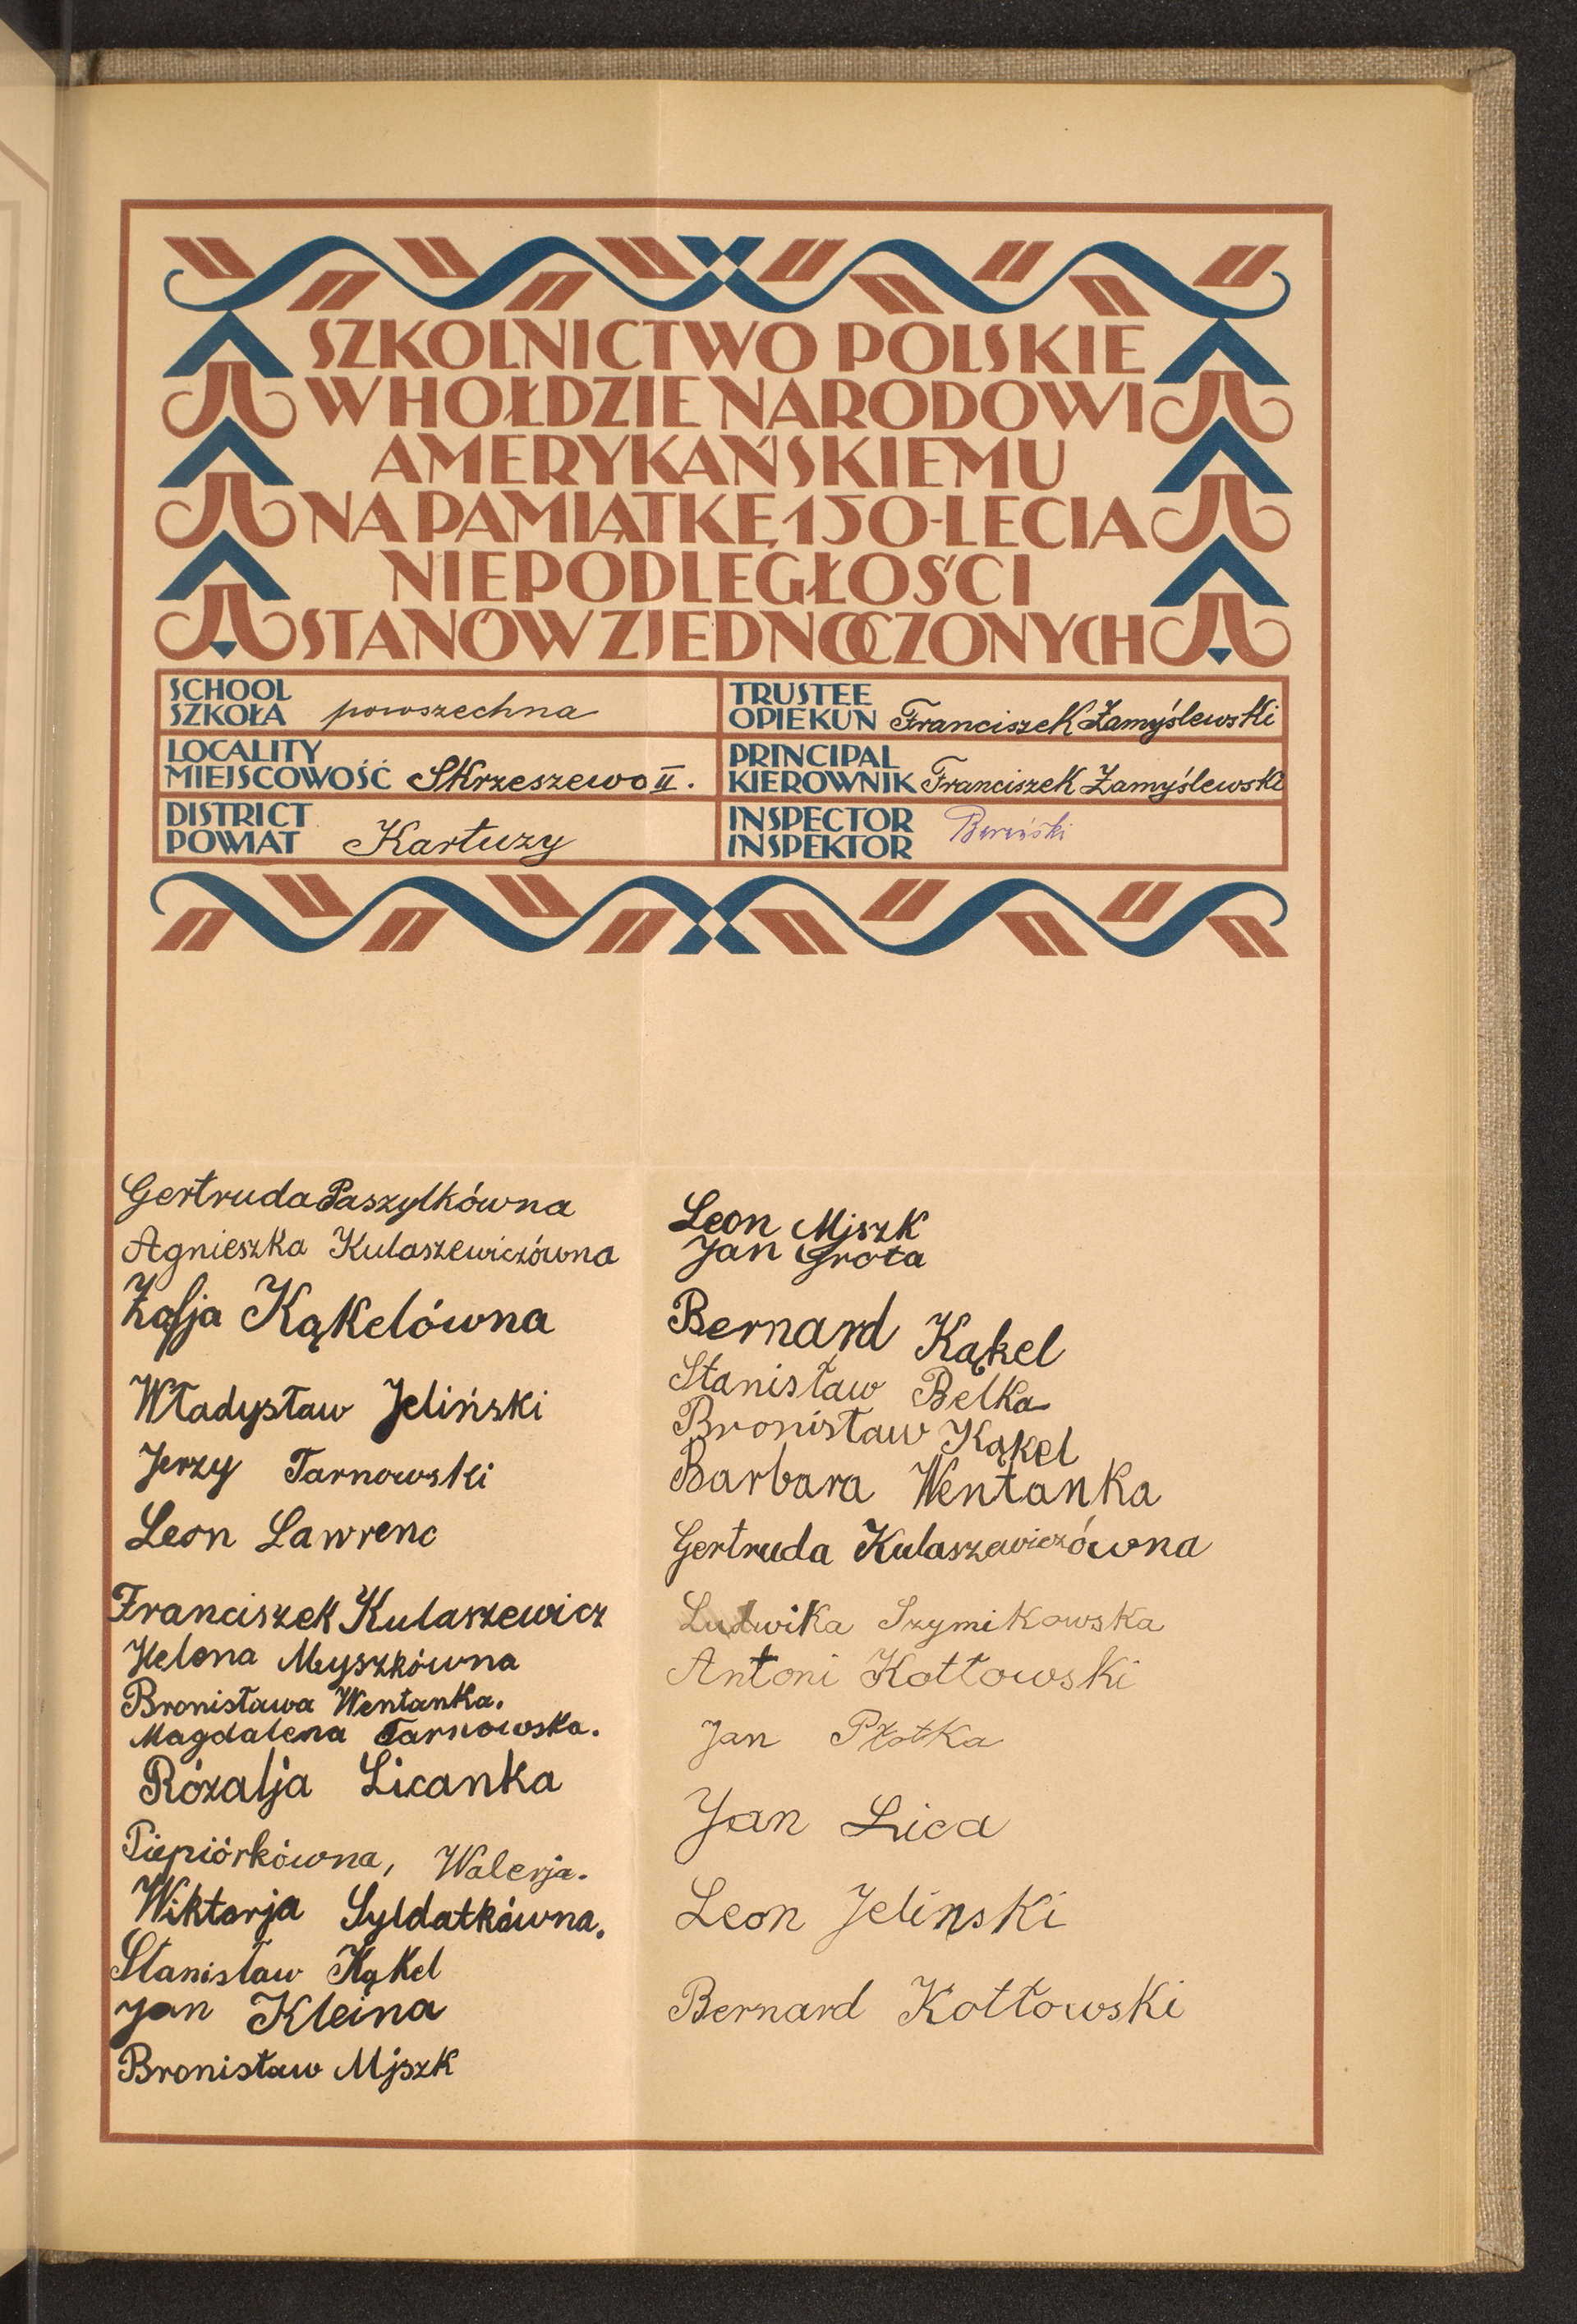 SZKOLNICTWO POLSKIE
W HOŁDZIE NARODOWI
AMERYKAŃSKIEMU
NA PAMIĄTKĘ 150-LECIA
NIEPODLEGŁOŚCI
STANÓW ZJEDNOCZONYCH
SCHOOL
SZKOŁA powszechna
TRUSTEE
OPIEKUN Franciszek Zamyślewski
LOCALITY
MIEJSCOWOŚĆ Skrzeszewo II.
PRINCIPAL
KIEROWNIK Franciszek Zamyślewski
DISTRICT
POWIAT Kartuzy
INSPECTOR
INSPEKTOR
Gertruda Paszylkówna
Agnieszka Kulaszewiczówna
Zofja Kąkelówna
Władysław Jeliński
Jerzy Tarnowski
Leon Lawrenc
Franciszek Kulaszewicz
Helena Myszkówna
Bronisława Wentanka.
Magdalena Tarnowska.
Rózalja Licanka
Piepiórkówna, Walerja.
Wiktorja Syldatkówna.
Stanisław Kąkel
Jan Kleina
Bronisław Mjszk
Leon Mjszk
Jan Grota
Bernard Kąkel
Stanisław Belka
Bronisław Kąkel
Barbara Wentanka
Gertruda Kulaszewiczówna
Ludwika Szymikowska
Antoni Kottowski
Jan Płotka
Jan Lica
Leon Jelinski
Bernard Kottowski